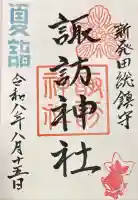 新発田総鎮守
諏訪神社
夏詣
令和八年八月十五日